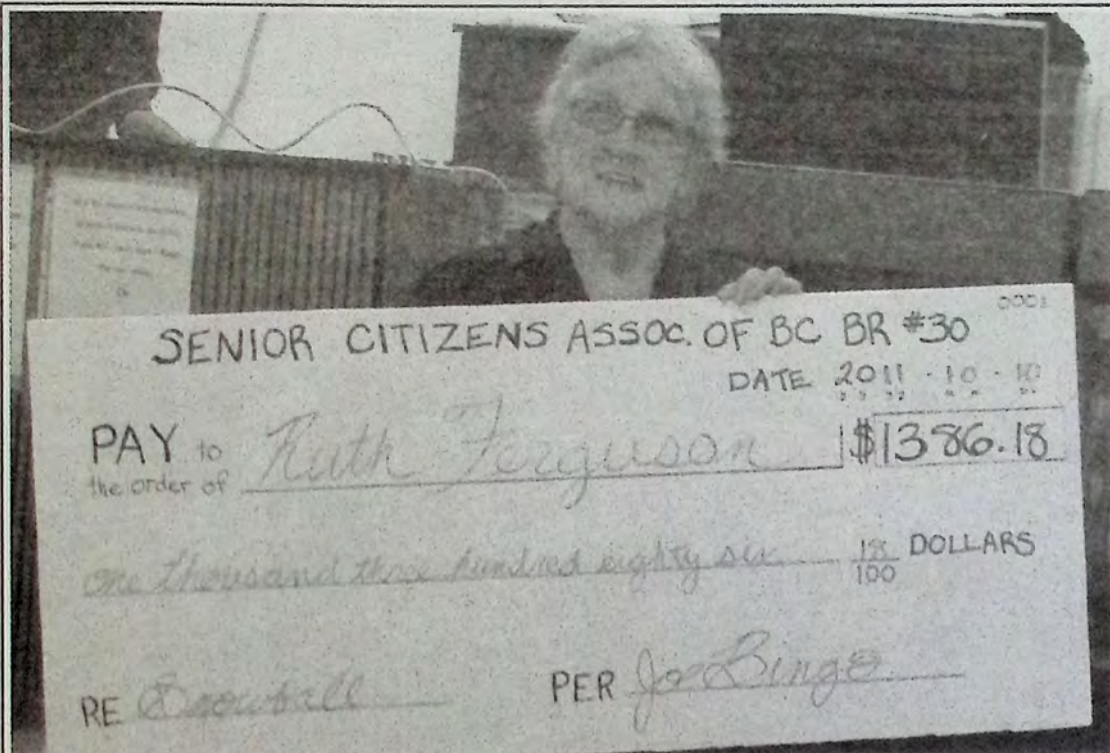 SENIOR CITIZENS ASSOC. OF BC BR #30
0001
DATE 2011-10-10
Y Y Y Y M M D D
PAY to the order of Ruth Ferguson $1386.18
one thousand three hundred eighty six 18/100 DOLLARS
RE Snowball PER Joe Bingo